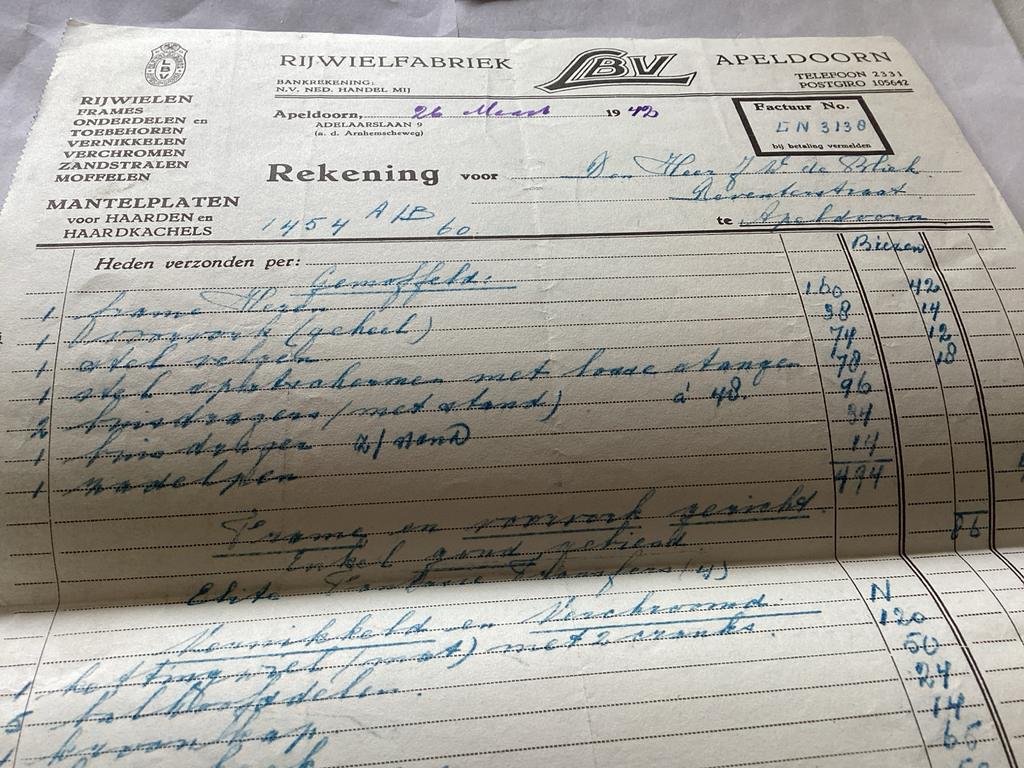 RIJWIELFABRIEK LBV APELDOORN
BANKREKENING:
N.V. NED. HANDEL MIJ
TELEFOON 2331
POSTGIRO 105642
LBV
RIJWIELEN
FRAMES
ONDERDELEN en
TOEBEHOREN
VERNIKKELEN
VERCHROMEN
ZANDSTRALEN
MOFFELEN
MANTELPLATEN
voor HAARDEN en
HAARDKACHELS
Apeldoorn, 26 Maart 1942
ADELAARSLAAN 9
(a. d. Arnhemscheweg)
Factuur No.
LN 3138
bij betaling vermelden
Rekening voor Den Heer J W de
Deventerstraat
te Apeldoorn
1454 ALB 60.
Biezen
Heden verzonden per:
Gemoffeld:
1 frame Heren 160 42
1 voorvork (geheel) 38 14
1 stel velgen 74 12
1 stel spatschermen met losse stangen 78 18
2 met stand) á 48. 96
1 z/stand 34
1 zadelpen 14
494
Frame en voorvork gericht 86
Enkel goud gebiesd
Elite Transfers (4)
Vernikkeld en Verchroomd. N
1 kettingwiel (mat) met 2 cranks. 120
5 balhoofddelen. 50
1 kroonkap 24
14
66